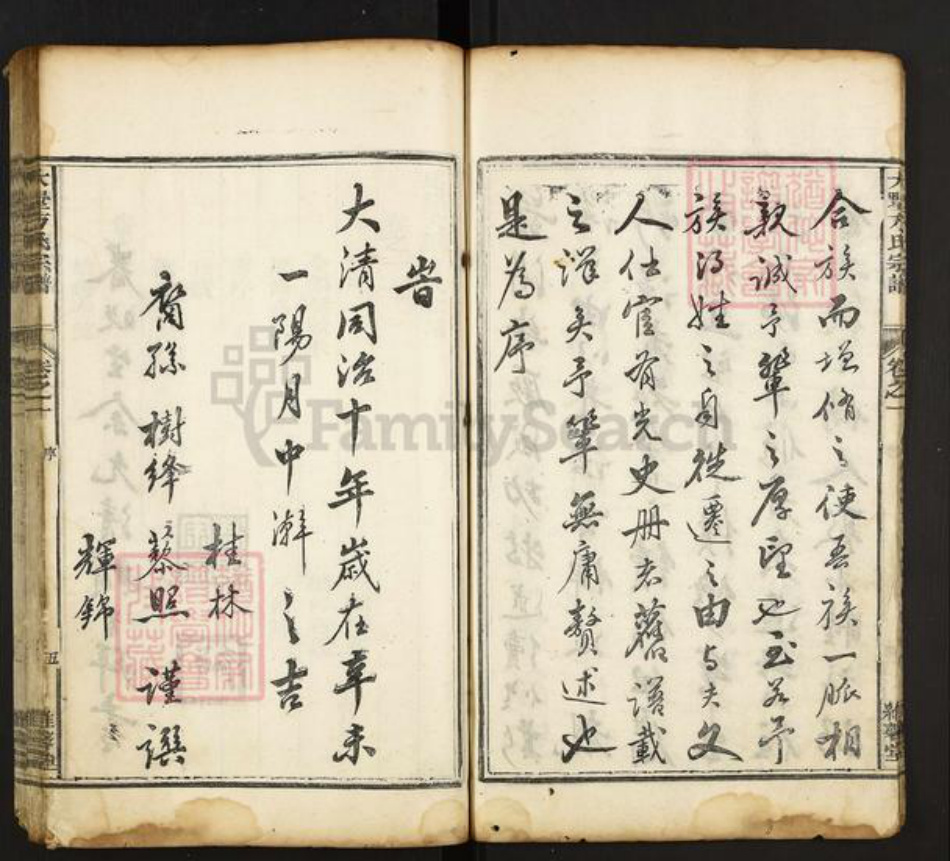 合族而增脩之使吾族一脈相
親誠予輩之厚望也至若予
族得姓之自徙遷之由与夫文
人仕宦有光史册者舊譜載
之詳矣予輩無庸贅述也
是為序
旹
大清同治十年歲在辛未
一陽月中澣之吉
桂林
裔孫樹絳藜照謹譔
輝錦
方氏宗譜
卷之一
序
五
FamilySearch